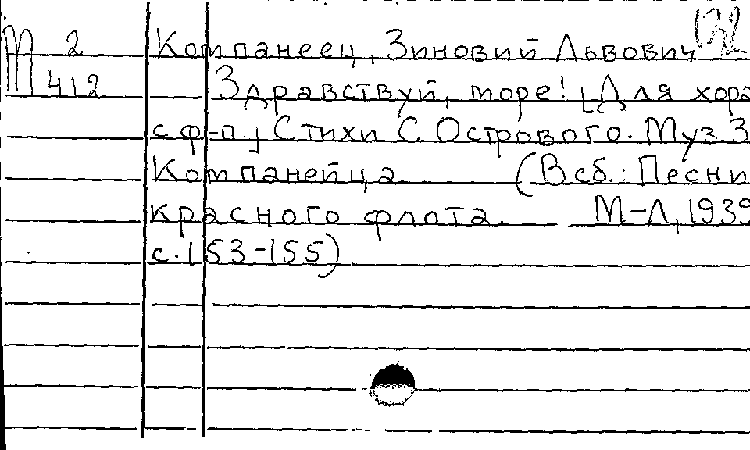 М 2 Компанеец, Зиновий Львович
412 Здравствуй, море! [Для хора
с ф-п] Стихи С. Острового. Муз. З.
Компанейца (В сб.: Песни
красного флота. М-Л, 1939
с. 153-155)